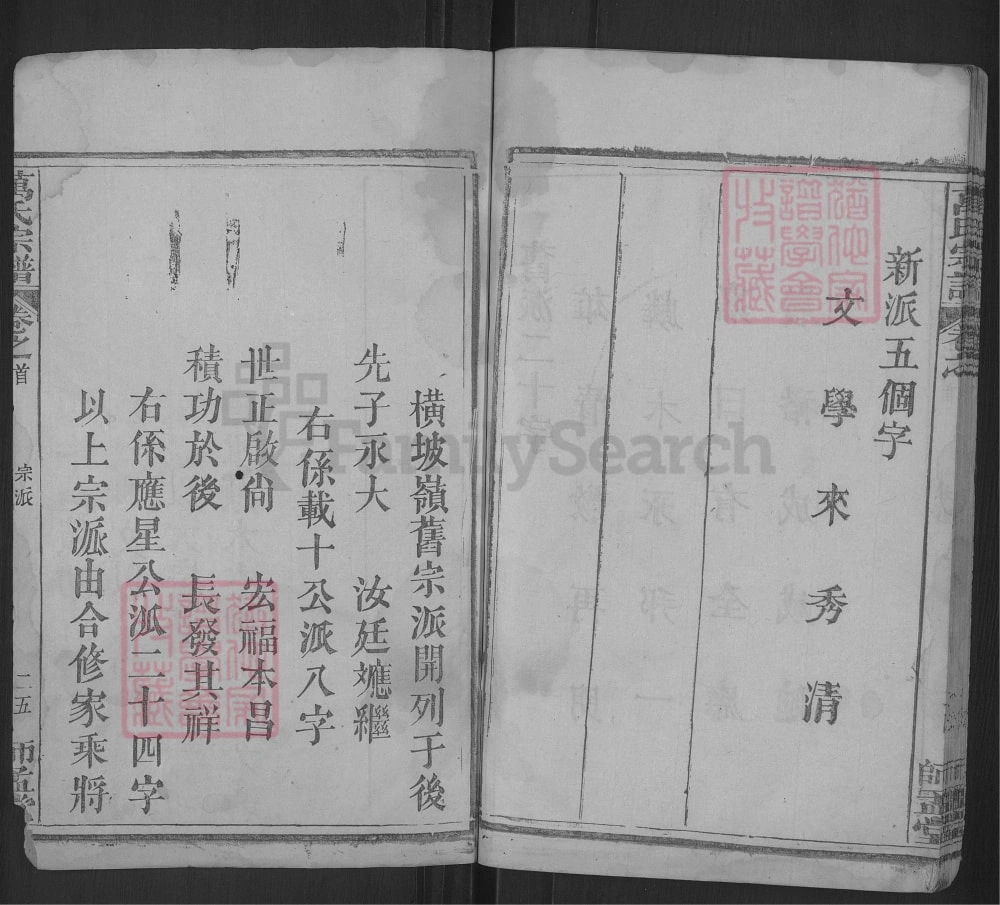 新派五個字
文學來秀清
橫坡嶺舊宗派開列于後
先子永大 汝廷兟繼
右係載十公派八字
世正啟尙 宏福本昌
積功於後 長發其祥
右係應星公派二十四字
以上宗派由合修家乘將
萬氏宗譜
卷之首
宗派
二五
師孟堂
萬氏宗譜
師孟堂
猶他家譜學會收藏
FamilySearch